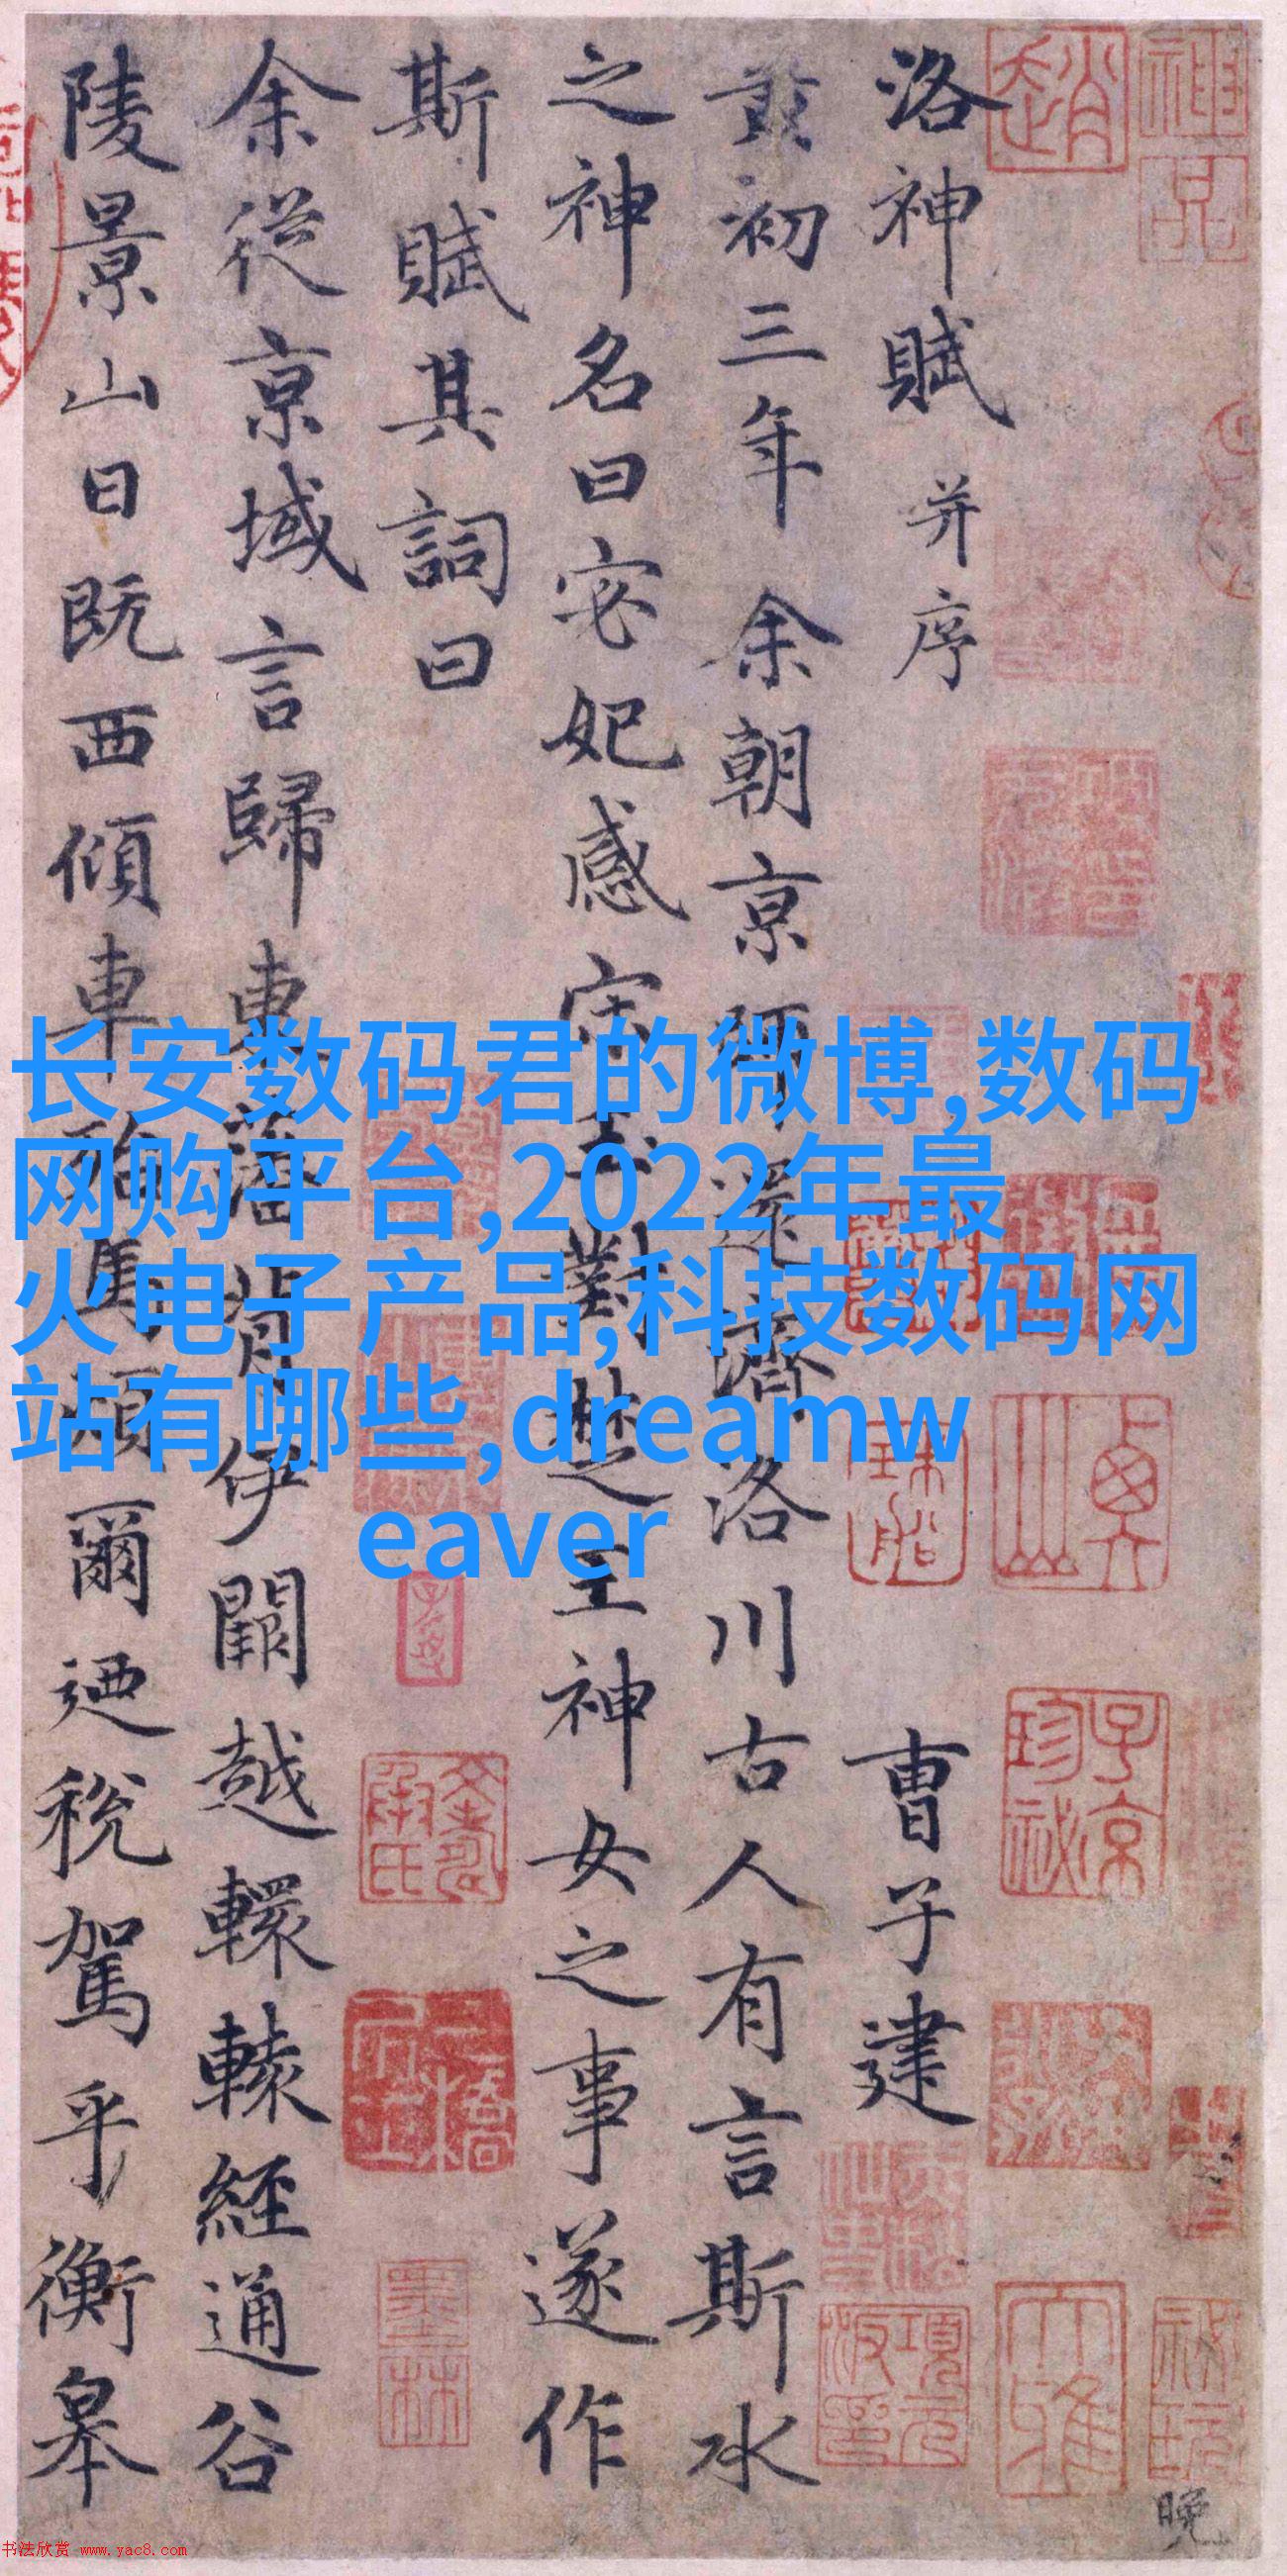 洛神賦 并序 曹子建
黃初三年余朝京師還濟洛川古人有言斯水
之神名曰宓妃感宋玉對楚王神女之事遂作
斯賦其詞曰
余從京域言歸東藩背伊闕越轘轅經通谷
陵景山日既西傾車殆馬煩爾迺稅駕乎衡皋
长安数码君的微博,数码
网购平台,2022年最
火电子产品,科技数码网
站有哪些,dreamw
eaver
神品
子京珍祕
項元汴印
墨林
晚
书法欣赏 www.yac8.com